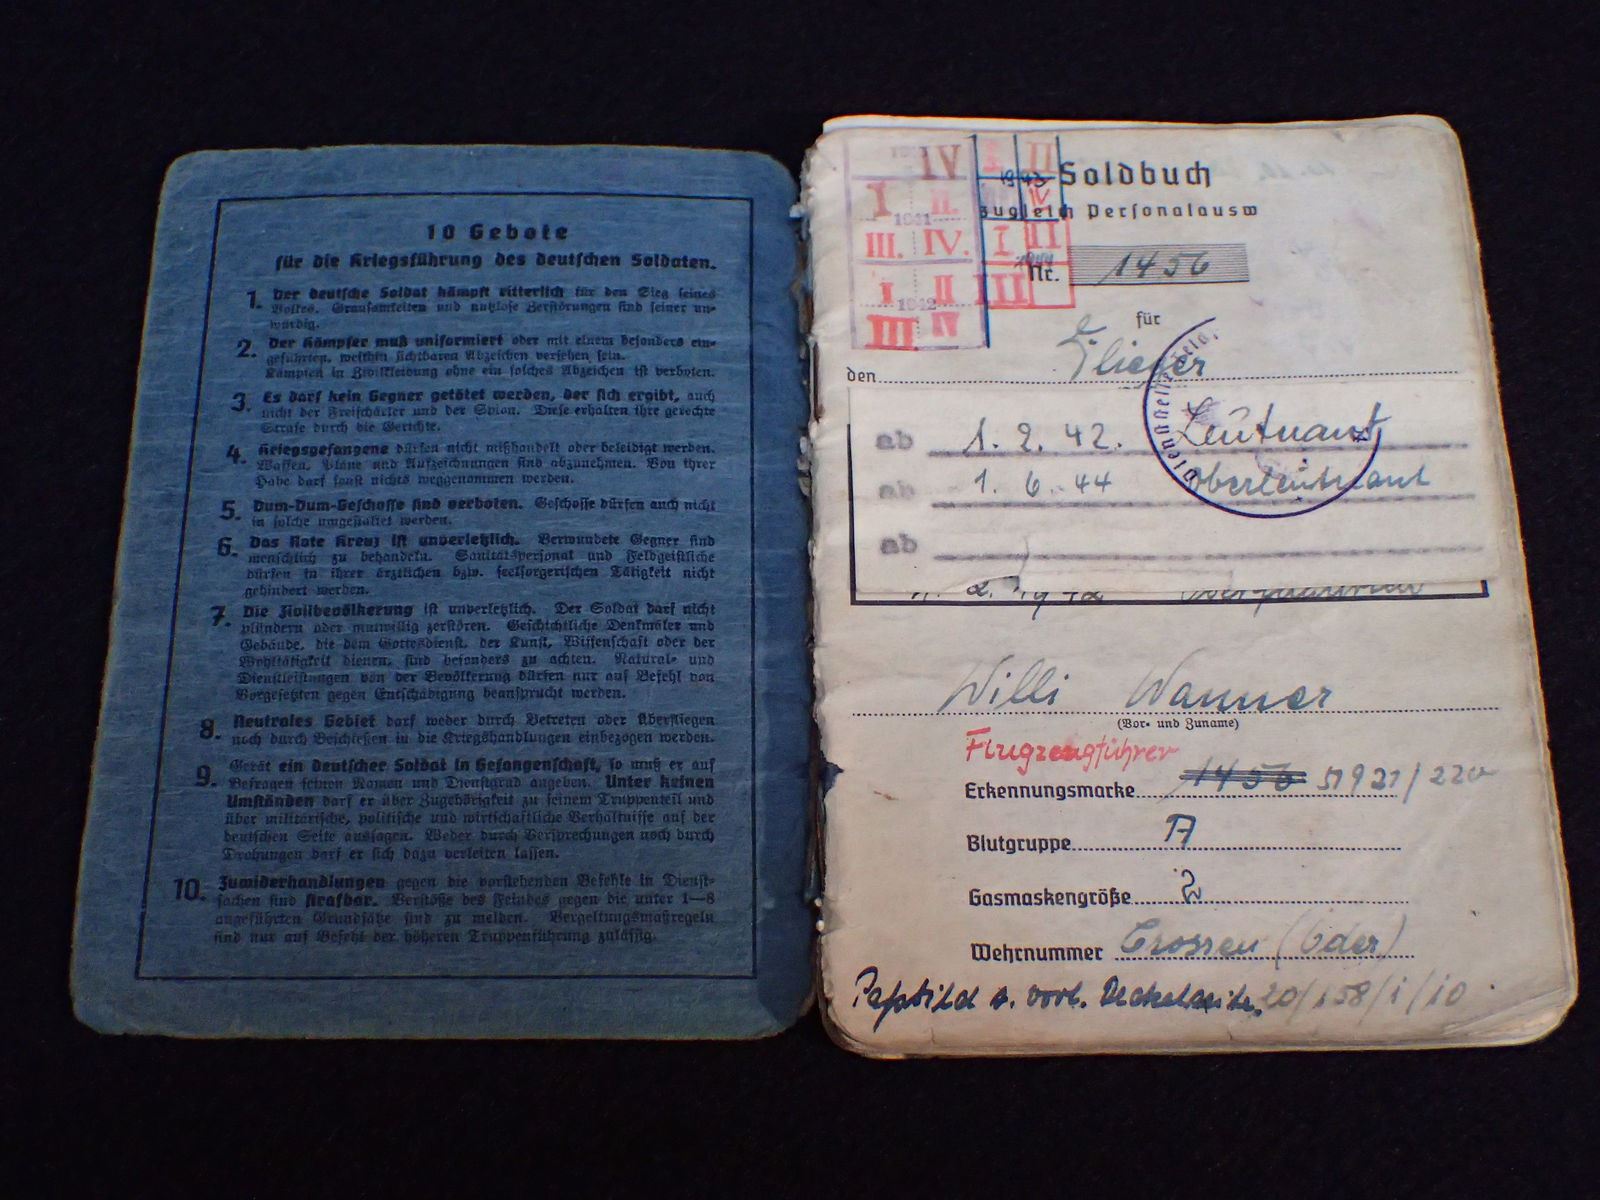 10 Gebote
für die Kriegsführung des deutschen Soldaten.
1. Der deutsche Soldat kämpft ritterlich für den Sieg seines
Volkes. Grausamkeiten und nutzlose Zerstörungen sind seiner un-
würdig.
2. Der Kämpfer muß uniformiert oder mit einem besonders ein-
geführten, weithin sichtbaren Abzeichen versehen sein.
Kämpfen in Zivilkleidung ohne ein solches Abzeichen ist verboten.
3. Es darf kein Gegner getötet werden, der sich ergibt, auch
nicht der Freischärler und der Spion. Diese erhalten ihre gerechte
Strafe durch die Gerichte.
4. Kriegsgefangene dürfen nicht mißhandelt oder beleidigt werden.
Waffen, Pläne und Aufzeichnungen sind abzunehmen. Von ihrer
Habe darf sonst nichts weggenommen werden.
5. Dum-Dum-Geschosse sind verboten. Geschosse dürfen auch nicht
in solche umgestaltet werden.
6. Das Rote Kreuz ist unverletzlich. Verwundete Gegner sind
menschlich zu behandeln. Sanitätspersonal und Feldgeistliche
dürfen in ihrer ärztlichen bzw. seelsorgerischen Tätigkeit nicht
gehindert werden.
7. Die Zivilbevölkerung ist unverletzlich. Der Soldat darf nicht
plündern oder mutwillig zerstören. Geschichtliche Denkmäler und
Gebäude, die dem Gottesdienst, der Kunst, Wissenschaft oder der
Wohltätigkeit dienen, sind besonders zu achten. Natural- und
Dienstleistungen von der Bevölkerung dürfen nur auf Befehl von
Vorgesetzten gegen Entschädigung beansprucht werden.
8. Neutrales Gebiet darf weder durch Betreten oder Überfliegen
noch durch Beschießen in die Kriegshandlungen einbezogen werden.
9. Gerät ein deutscher Soldat in Gefangenschaft, so muß er auf
Befragen seinen Namen und Dienstgrad angeben. Unter keinen
Umständen darf er über Zugehörigkeit zu seinem Truppenteil und
über militärische, politische und wirtschaftliche Verhältnisse auf der
deutschen Seite aussagen. Weder durch Versprechungen noch durch
Drohungen darf er sich dazu verleiten lassen.
10. Zuwiderhandlungen gegen die vorstehenden Befehle in Dienst-
sachen sind strafbar. Verstöße des Feindes gegen die unter 1—8
angeführten Grundsätze sind zu melden. Vergeltungsmaßregeln
sind nur auf Befehl der höheren Truppenführung zulässig.
IV I II
1943 IV
I II.
1941
III. IV. I II
1944
I II III
1942
III IV
Soldbuch
zugleich Personalausw
Nr. 1456
für
den Flieger
ab 1. 2. 42. Leutnant
ab 1. 6. 44 Oberleutnant
ab
Dienststelle Feldp.
Willi Wanner
(Vor- und Zuname)
Flugzeugführer
Erkennungsmarke 1456 51921/220
Blutgruppe A
Gasmaskengröße 2
Wehrnummer Crossen (Oder)
Passbild s. vord. Deckelseite. 20/158/1/10